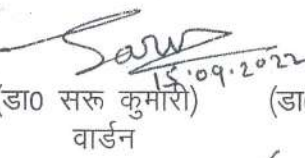 Saru
15.09.2022
(डा0 सरू कुमारी) (डा
वार्डन